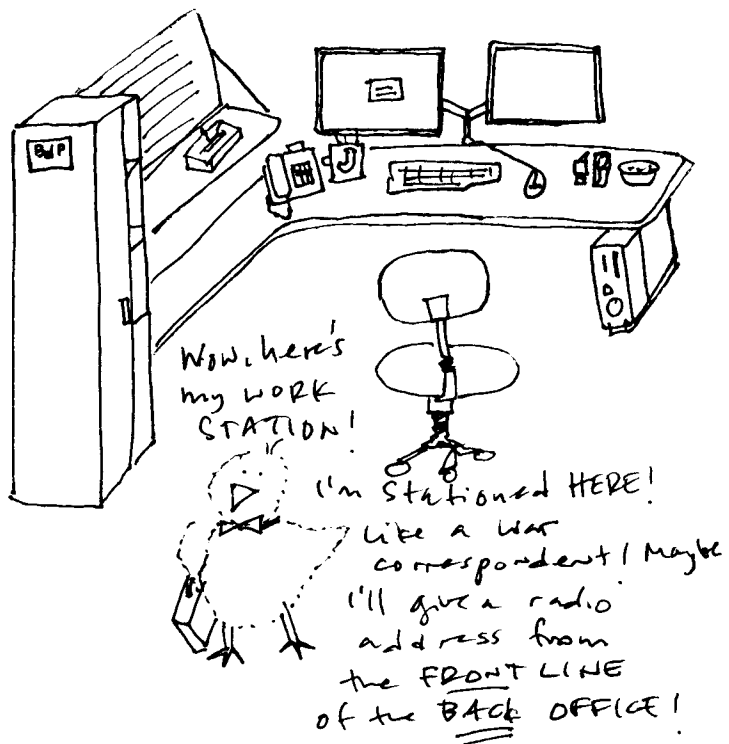 BdP
Wow, here's
my WORK
STATION!
I'm Stationed HERE!
Like a war
correspondent! Maybe
I'll give a radio
address from
the FRONT LINE
of the BACK OFFICE!